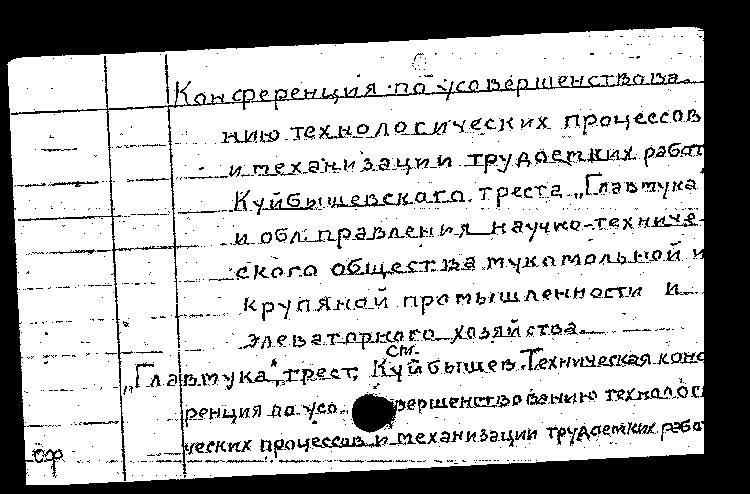 Конференция по усовершенствова-
нию технологических процессов
и механизации трудоемких работ
Куйбышевского треста „Главмука"
и обл. правления научно-техниче-
ского общества мукомольной и
крупяной промышленности и
элеваторного хозяйства.
см.
„Главмука", трест, Куйбышев. Техническая конф
ренция по усо вершенствованию технолог
ческих процессов и механизации трудоемких работ
оф